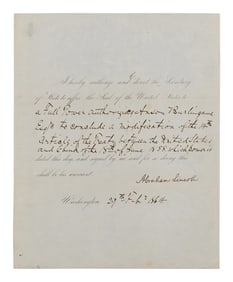 I hereby authorize and direct the Secretary
of State to affix the Seal of the United States to
a Full Power authorizing Anson Burlingame
Esqr to conclude a modification of the
Article of the Treaty between the United States
and China of the 18th of June 1858
dated this day, and signed by me and for so doing this
shall be his warrant.
Abraham Lincoln
Washington, 29th 1864